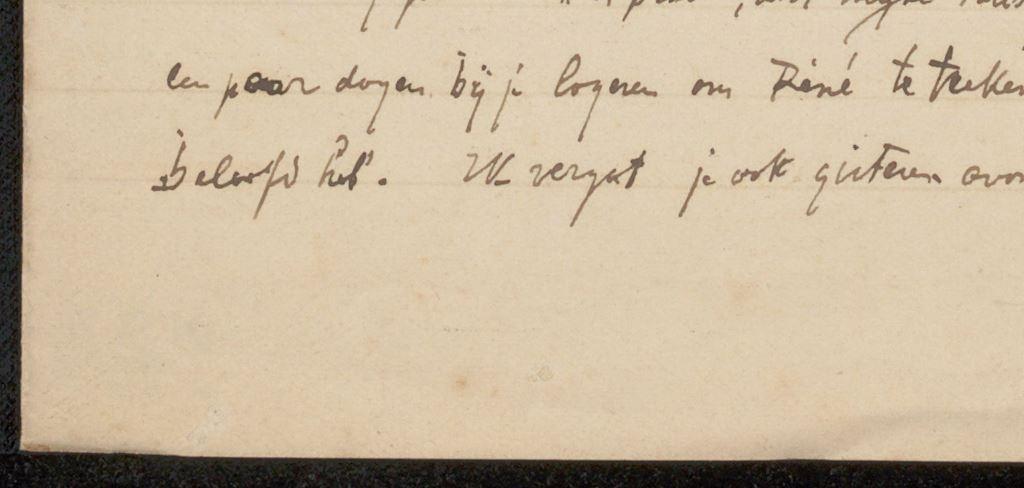 een paar dagen bij je logeren om René te treken
Beloofd heb. Ik vergat je ook gisteren avon